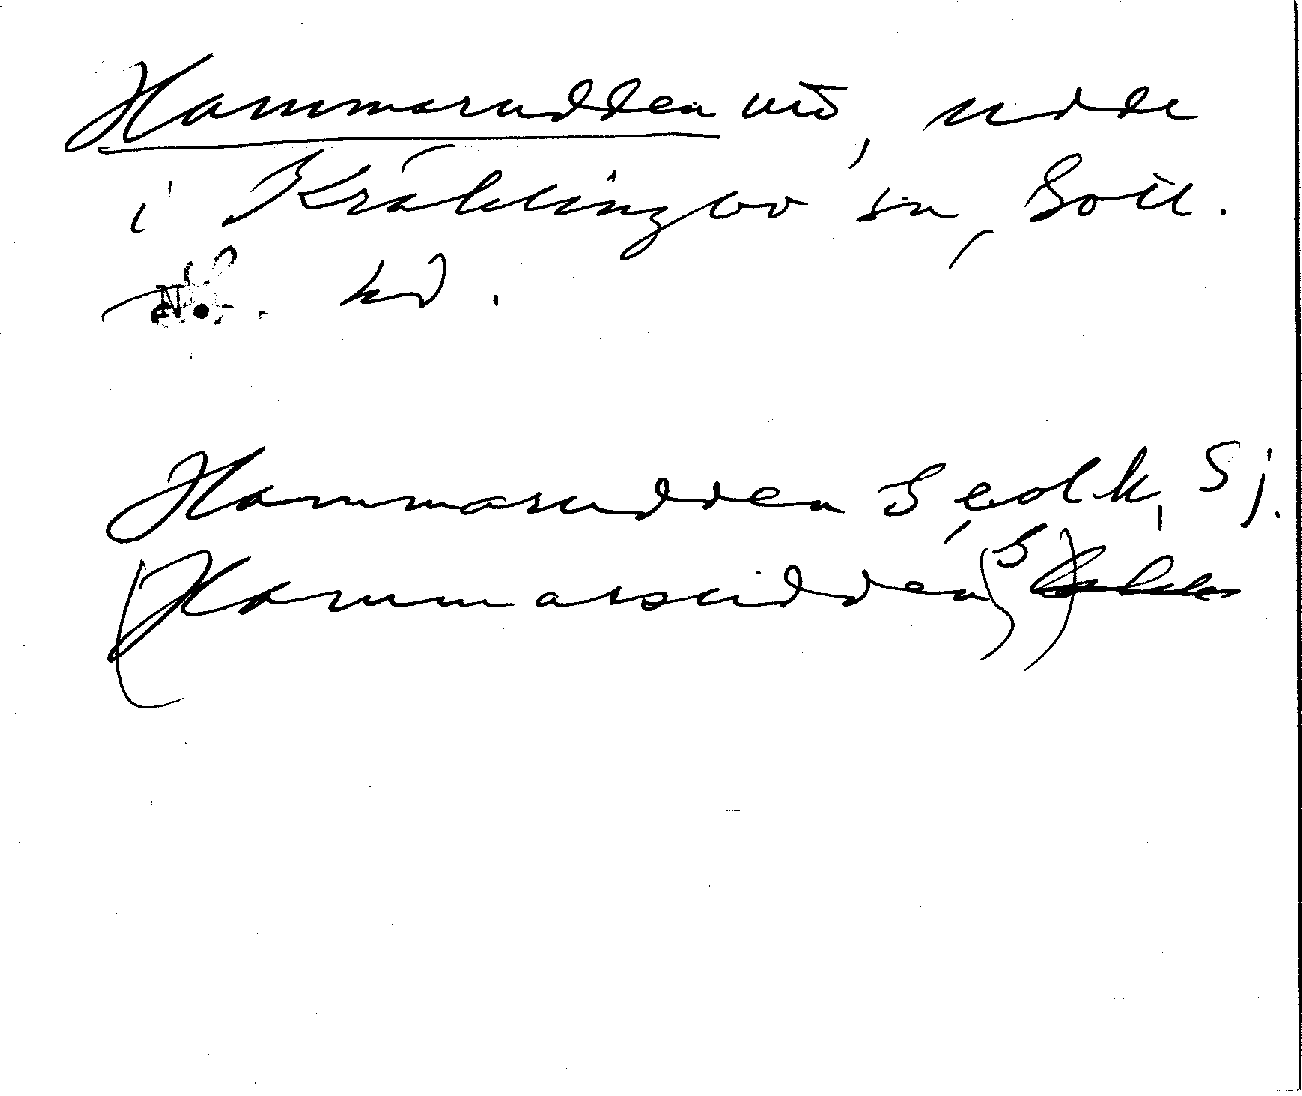 Hammarudden, udde
i Kräklingbo sn, Gotl.
N. hd.
Hammarudden G, eol k, Sj.
(Hammarsudden (G)